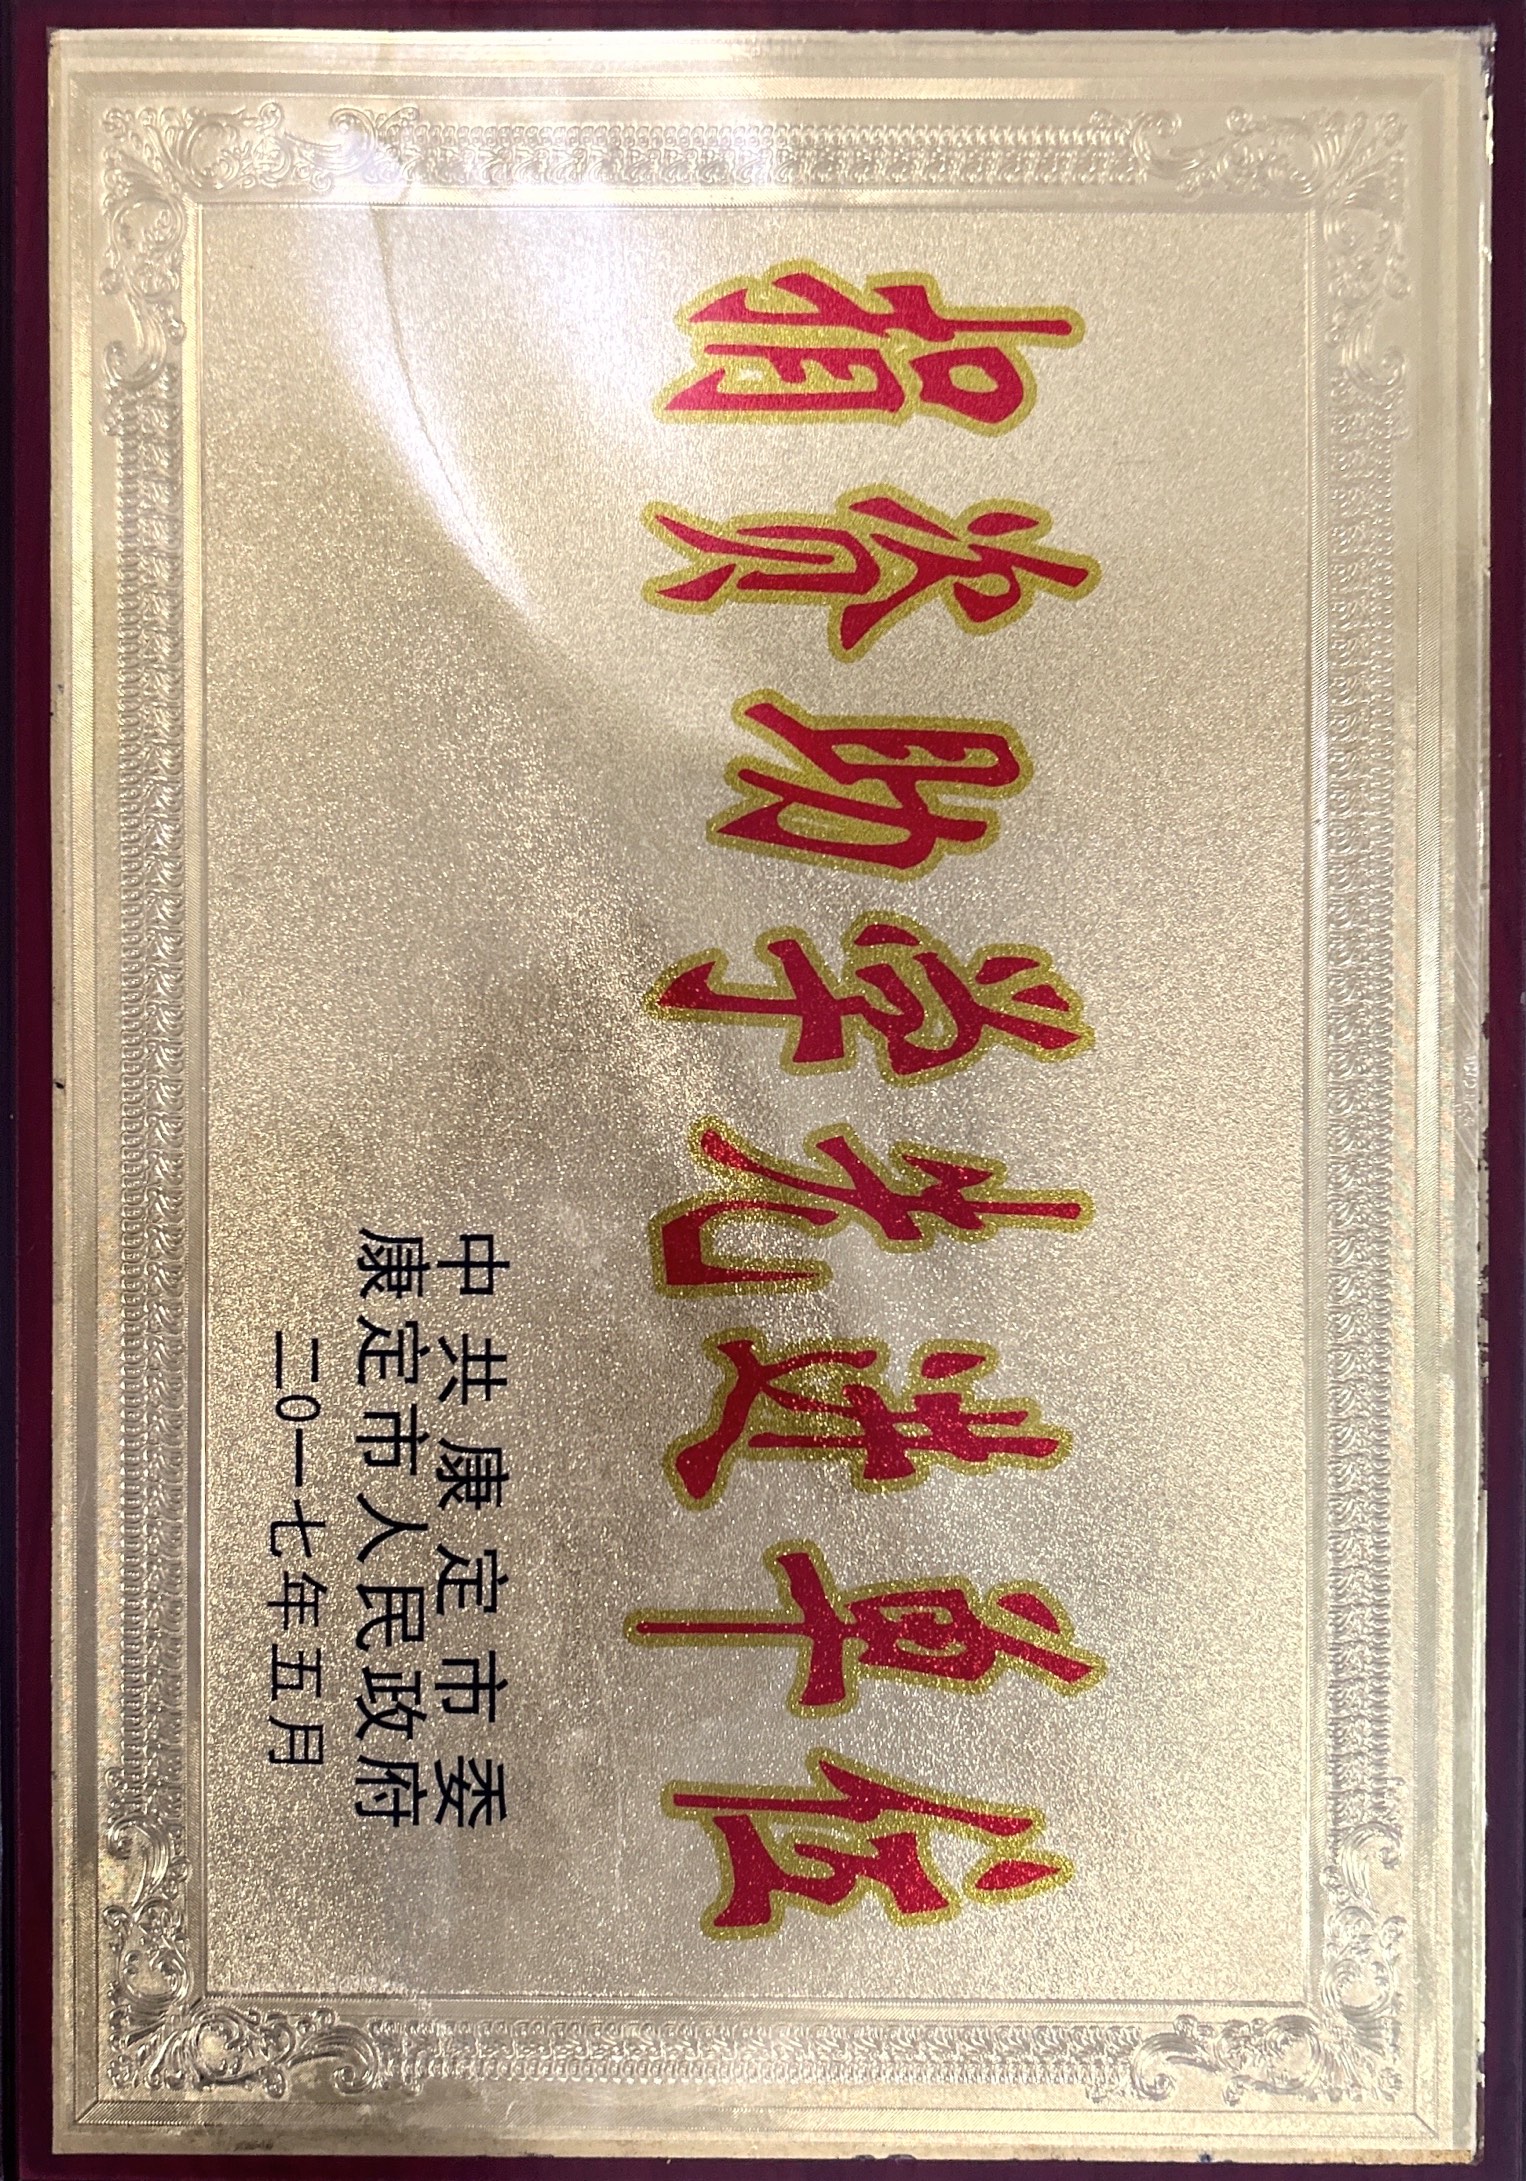 捐资助学先进单位
中共康定市委
康定市人民政府
二〇一七年五月